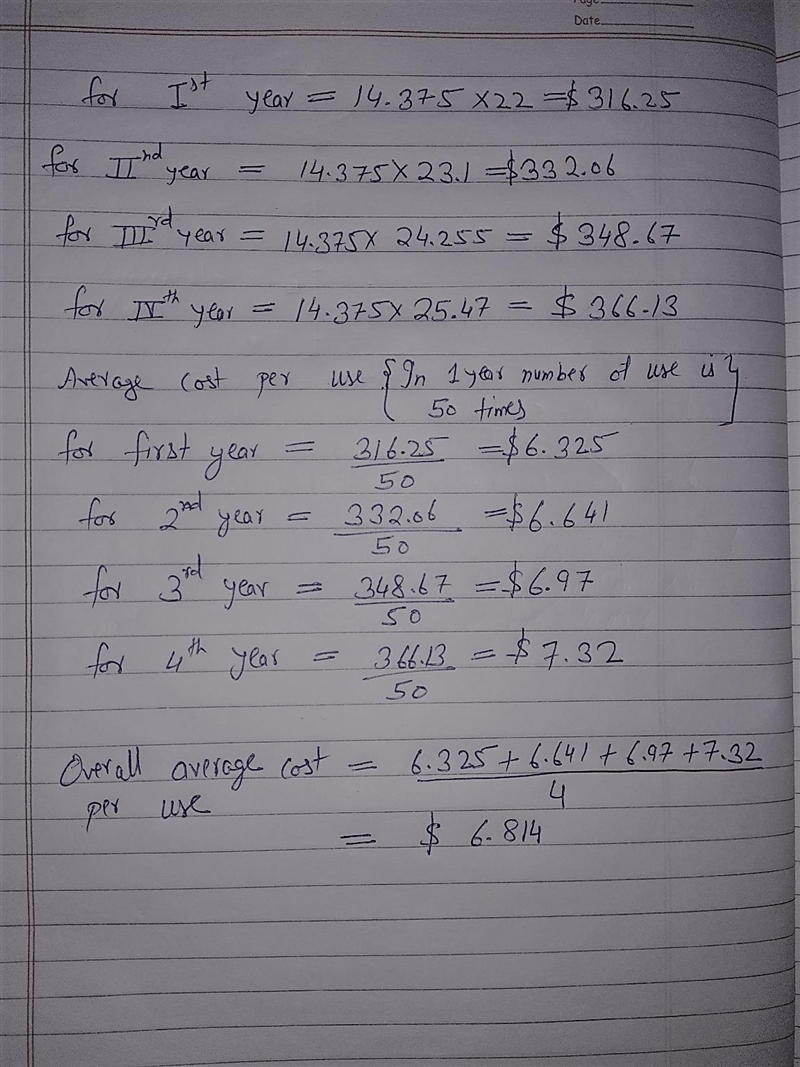 Page
Date
for Ist year = 14.375 × 22 = $ 316.25
for IInd year = 14.375 × 23.1 = $332.06
for IIIrd year = 14.375 × 24.255 = $ 348.67
for IVth year = 14.375 × 25.47 = $ 366.13
Average cost per use { In 1 year number of use is }
50 times
for first year = 316.25/50 = $6.325
for 2nd year = 332.06/50 = $6.641
for 3rd year = 348.67/50 = $6.97
for 4th year = 366.13/50 = $ 7.32
Overall average cost = 6.325 + 6.641 + 6.97 + 7.32 / 4
per use
= $ 6.814